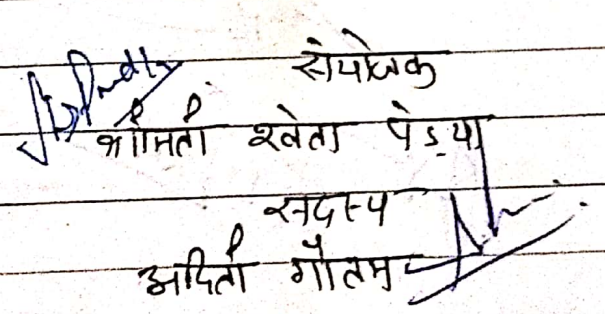 संयोजक
श्रीमती श्वेता पेड्या
सदस्य
अदिती गौतम